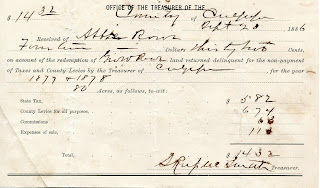 OFFICE OF THE TREASURER OF THE
$14 32 County of Culpeper
Sept 20 1886
Received of Abbie Row
Fourteen Dollars thirty two Cents,
on account of the redemption of land returned delinquent for the non-payment
of Taxes and County Levies by the Treasurer of Culpeper, for the year
1877 & 1878
80 Acres, as follows, to-wit:
State Tax, $ 5 82
County Levies for all purposes, 6 74
Commissions
Expenses of sale,
Total, $ 14 32
Treasurer.